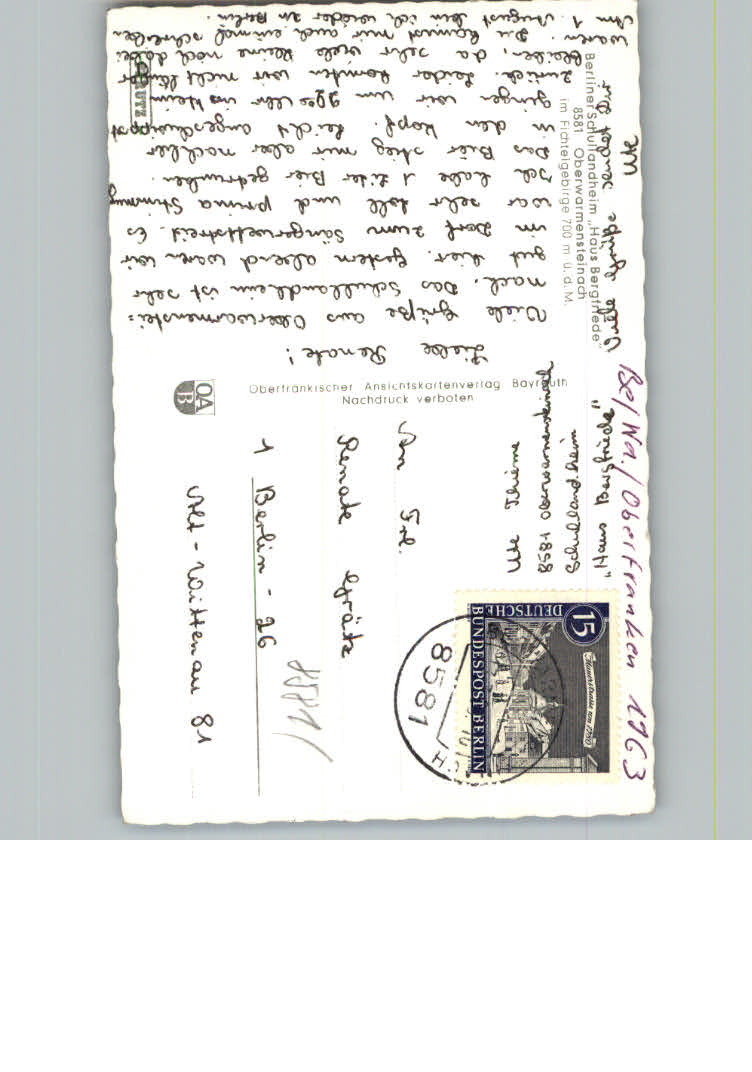 Liebe Renate!
Viele Grüße aus Oberwarmenstei=
nach. Das Schullandheim ist sehr
gut hier. Gestern abend waren wir
im Dorf zum Sängerwettstreit. Es
war sehr toll und prima Stimmung
Ich habe 1 Liter Bier getrunken.
Das Bier stieg mir aber nachher
in den Kopf. Leicht angeschwippst
gingen wir um 9 Uhr ins Heim
zurück. Leider konnten wir nicht länger
bleiben, da sehr viele kleine noch dabei
waren. Du kannst mir auch einmal schreiben
Am 1. August bin ich wieder in Berlin.
Viele Grüße sendet Dir
Ute
Berliner Schullandheim „Haus Bergfriede"
8581 Oberwarmensteinach
im Fichtelgebirge 700 m ü. d. M.
Oberfränkischer Ansichtskartenverlag Bayreuth
Nachdruck verboten
OA
B
Ute Thieme
8581 Oberwarmensteinach
Schullandheim
„Haus Bergfriede"
An Frl.
Renate
1 Berlin - 26
Alt - Wittenau 81
8581/
Be/Wa./Oberfranken 1963
15
DEUTSCHE
BUNDESPOST BERLIN
Mauerstrasse um 1780
8581